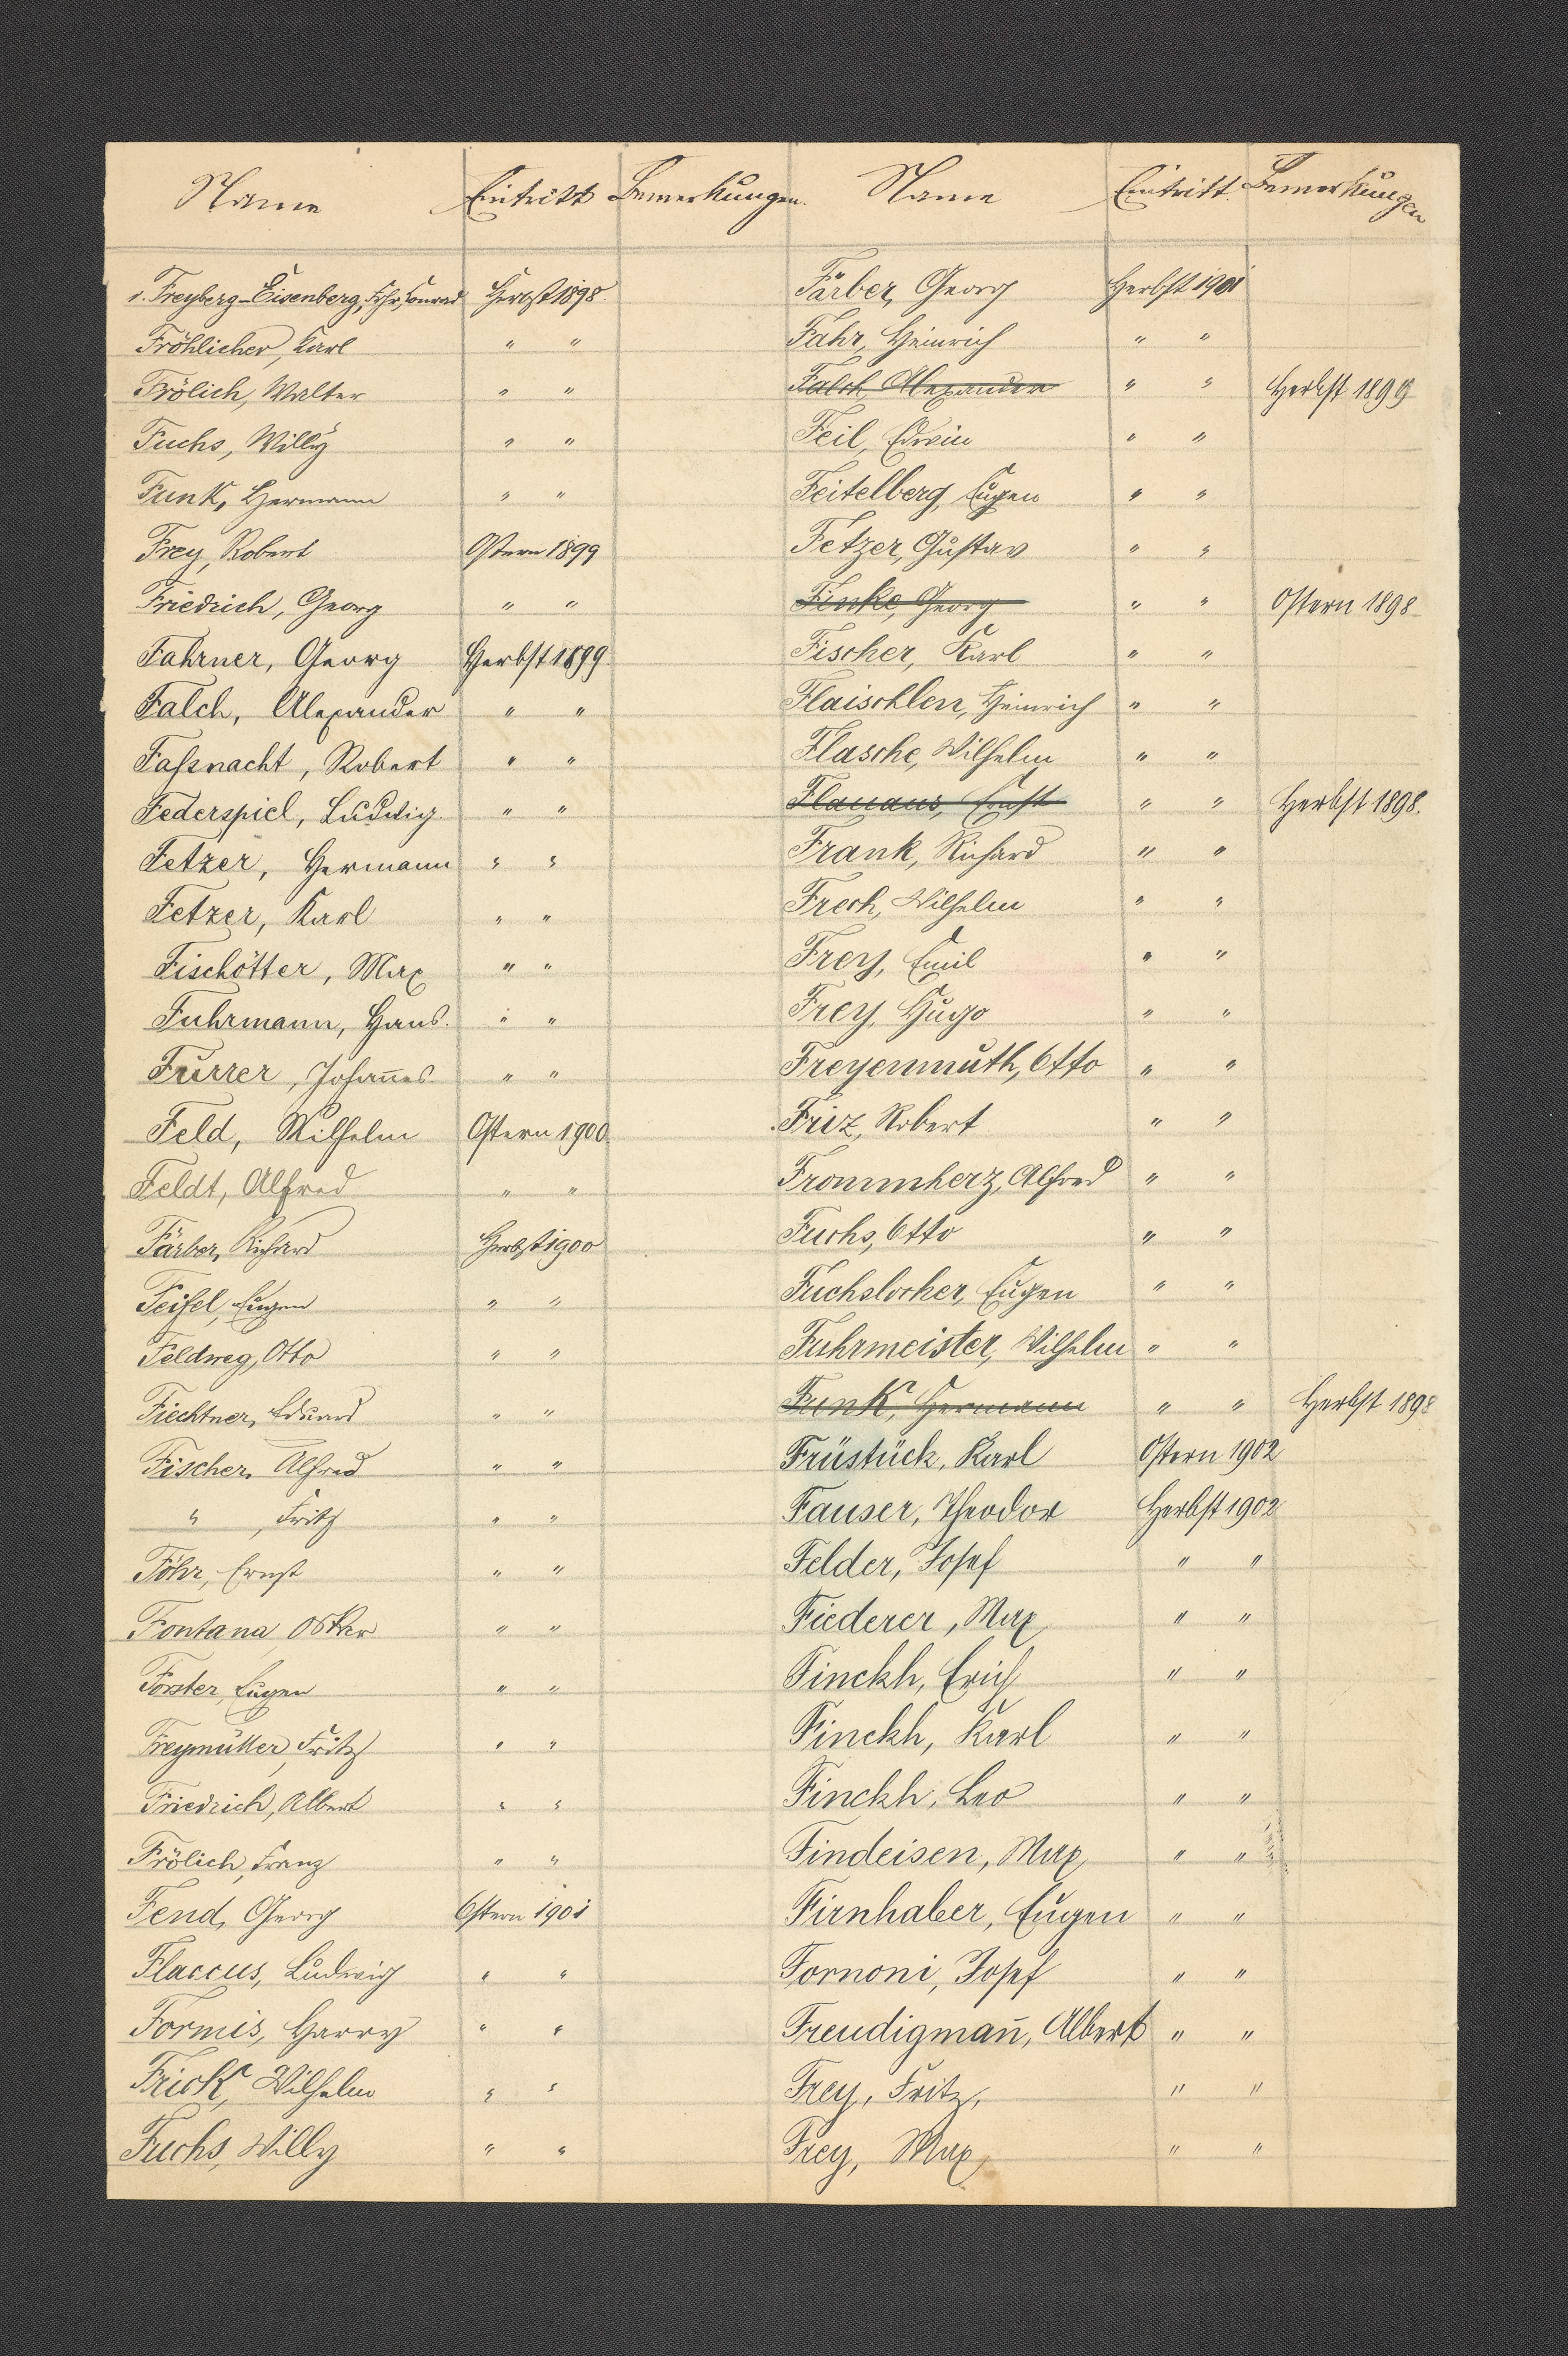 Name Eintritt Bemerkungen.
v. Freyberg-Eisenberg, Frhr, Konrad Herbst 1898.
Fröhlicher, Karl " "
Frölich, Walter " "
Fuchs, Willy " "
Funk, Hermann " "
Frey, Robert Ostern 1899
Friedrich, Georg " "
Fahrner, Georg Herbst 1899.
Falch, Alexander " "
Faßnacht, Robert " "
Federspiel, Ludwig. " "
Fetzer, Hermann " "
Fetzer, Karl " "
Fischötter, Max " "
Fuhrmann, Hans. " "
Furrer, Johan̅es. " "
Feld, Wilhelm Ostern 1900.
Feldt, Alfred " "
Färber, Richard Herbst 1900
Feifel, Eugen " "
Feldweg, Otto " "
Fiechtner, Eduard " "
Fischer, Alfred " "
" , Fritz " "
Föhr, Ernst " "
Fontana, Oskar " "
Forster, Eugen " "
Freymüller, Fritz " "
Friedrich, Albert " "
Frölich, Franz " "
Fend, Georg Ostern 1901
Flaccus, Ludwig " "
Formis, Harry " "
Frick, Wilhelm " "
Fuchs, Willy " "
Name Eintritt. Bemerkungen
Färber, Georg Herbst 1901
Fahr, Heinrich " "
Falch, Alexander " " Herbst 1899
Feil, Edwin " "
Feitelberg, Eugen " "
Fetzer, Gustav " "
Finke, Georg " " Ostern 1898
Fischer, Karl " "
Flaischlen, Heinrich " "
Flasche, Wilhelm " "
Flauaus, Ernst " " Herbst 1898.
Frank, Richard " "
Frech, Wilhelm " "
Frey, Emil " "
Frey, Hugo " "
Freyenmuth, Otto " "
Friz, Robert " "
Frommherz, Alfred " "
Fuchs, Otto " "
Fuchslocher, Eugen " "
Fuhrmeister, Wilhelm " "
Funk, Hermann " " Herbst 1898
Früstück, Karl Ostern 1902
Fauser, Theodor Herbst 1902
Felder, Josef " "
Fiederer, Max " "
Finckh, Erich " "
Finckh, Karl " "
Finckh, Leo " "
Findeisen, Max " "
Firnhaber, Eugen " "
Fornoni, Josef " "
Freudigman̅, Albert " "
Frey, Fritz, " "
Frey, Max, " "